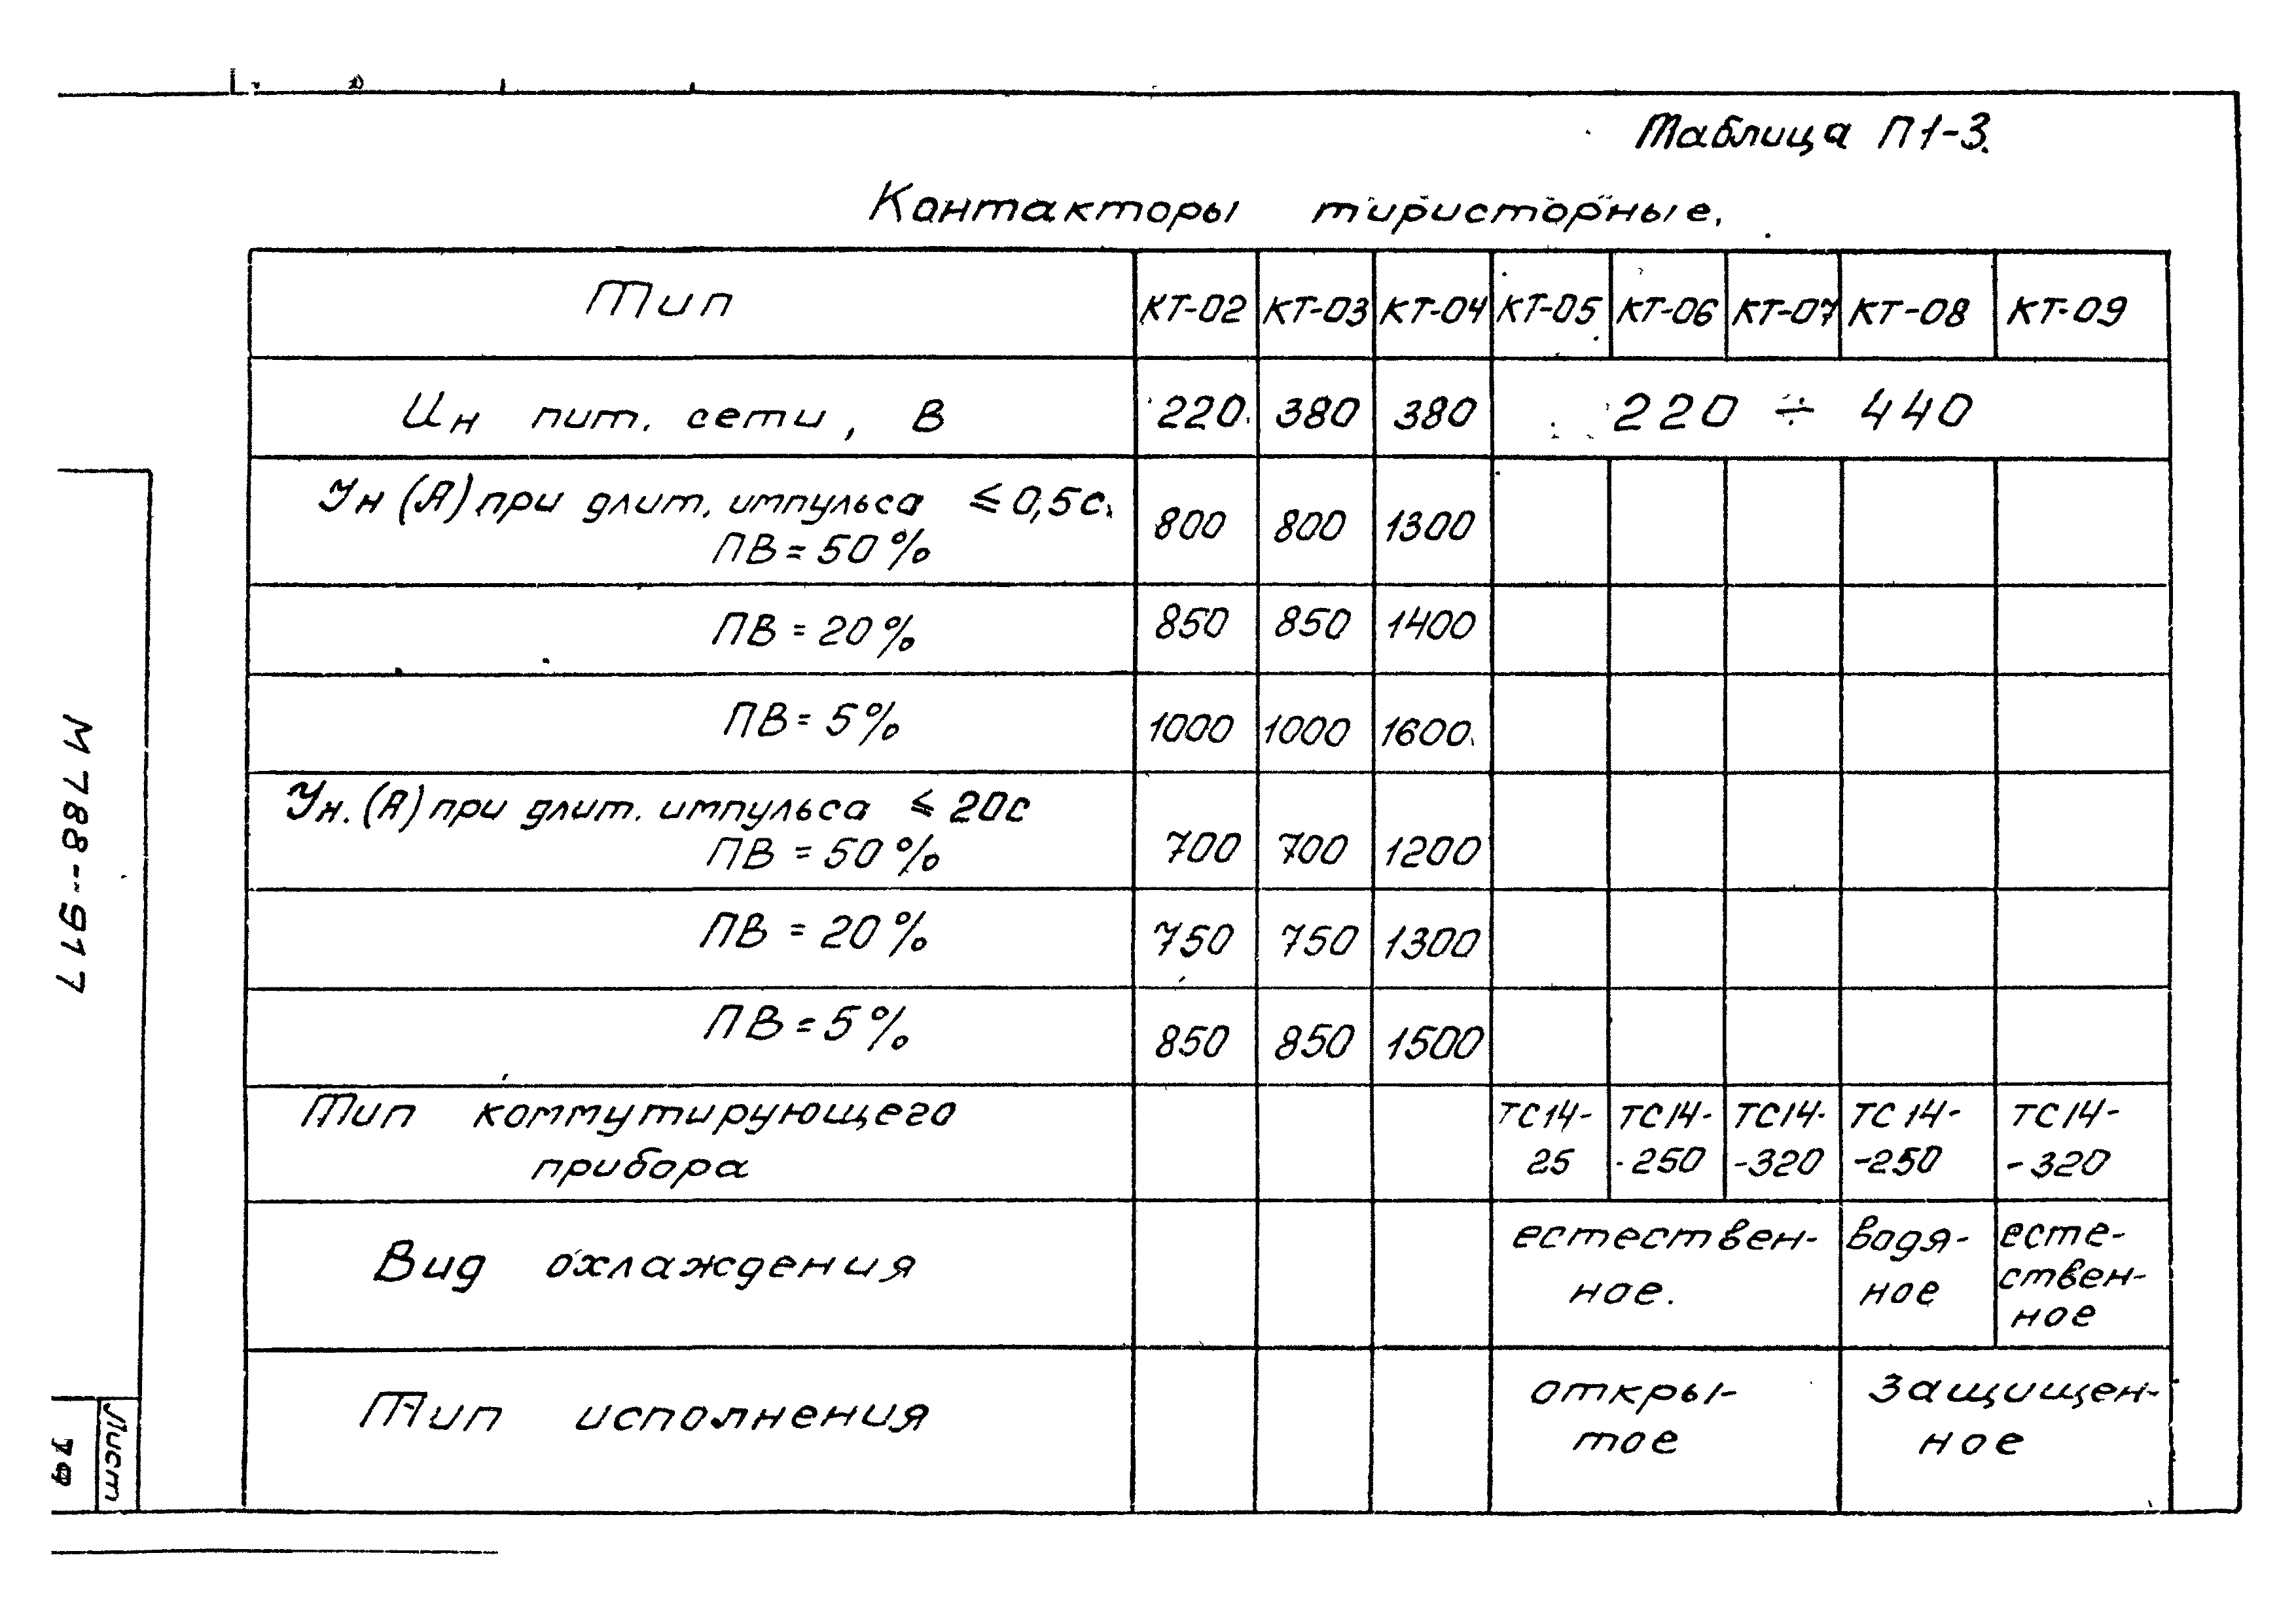 Таблица П1-3.
Контакторы тиристорные.
Тип КТ-02 КТ-03 КТ-04 КТ-05 КТ-06 КТ-07 КТ-08 КТ-09
Uн пит. сети, В 220 380 380 220 ÷ 440
Jн (А) при длит. импульса ≤ 0,5с.
ПВ = 50% 800 800 1300
ПВ = 20% 850 850 1400
ПВ = 5% 1000 1000 1600
Jн. (А) при длит. импульса ≤ 20с
ПВ = 50% 700 700 1200
ПВ = 20% 750 750 1300
ПВ = 5% 850 850 1500
Тип коммутирующего ТС14- ТС14- ТС14- ТС14- ТС14-
прибора 25 -250 -320 -250 -320
Вид охлаждения
естествен-
ное.
водя-
ное
есте-
ствен-
ное
Тип исполнения
откры-
тое
Защищен-
ное
М 788--917
Лист
79